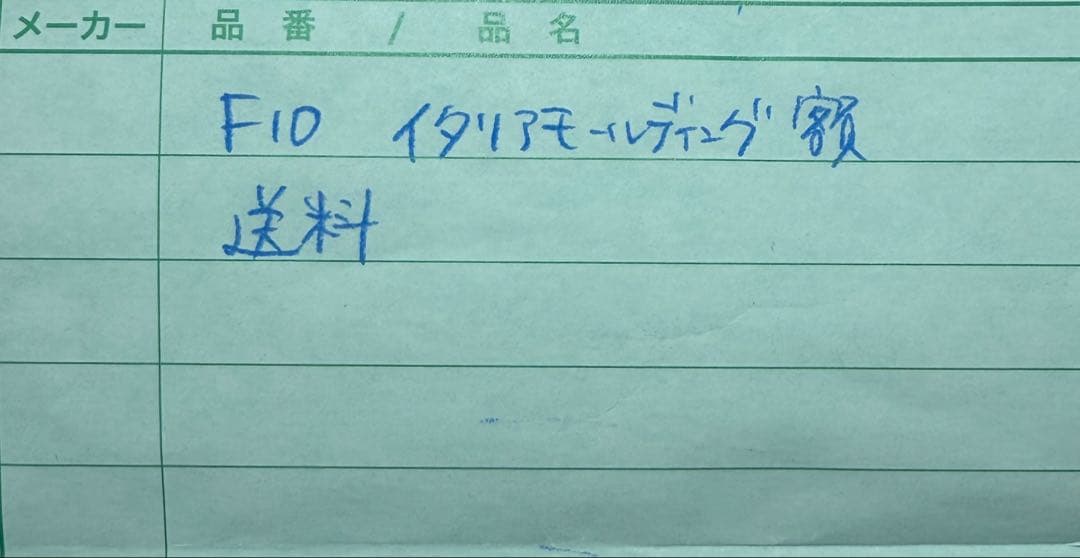 メーカー 品番 / 品名
F10 イタリアモールディング額
送料